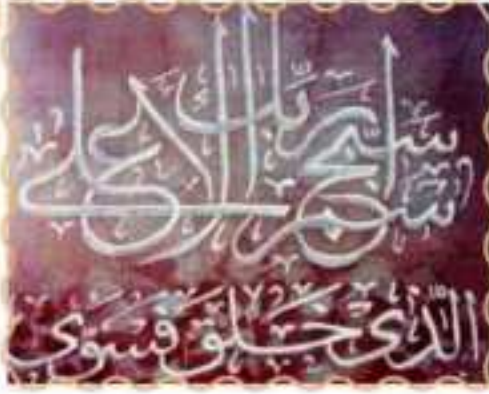 سبح اسم ربك الاعلى
الذى خلق فسوى